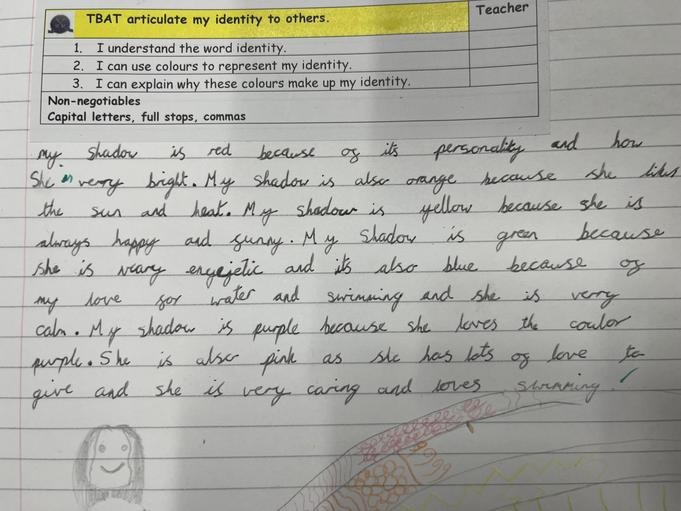 TBAT articulate my identity to others.
Teacher
1. I understand the word identity.
2. I can use colours to represent my identity.
3. I can explain why these colours make up my identity.
Non-negotiables
Capital letters, full stops, commas
my shadow is red because of its personality and how
She is verry bright. My shadow is also orange because she likes
the sun and heat. My shadow is yellow because she is
always happy and sunny. My shadow is green because
she is veary engejetic and its also blue because of
my love for water and swimming and she is verry
calm. My shadow is purple because she loves the coulor
purple. She is also pink as she has lots of love to
give and she is very caring and loves swimming.